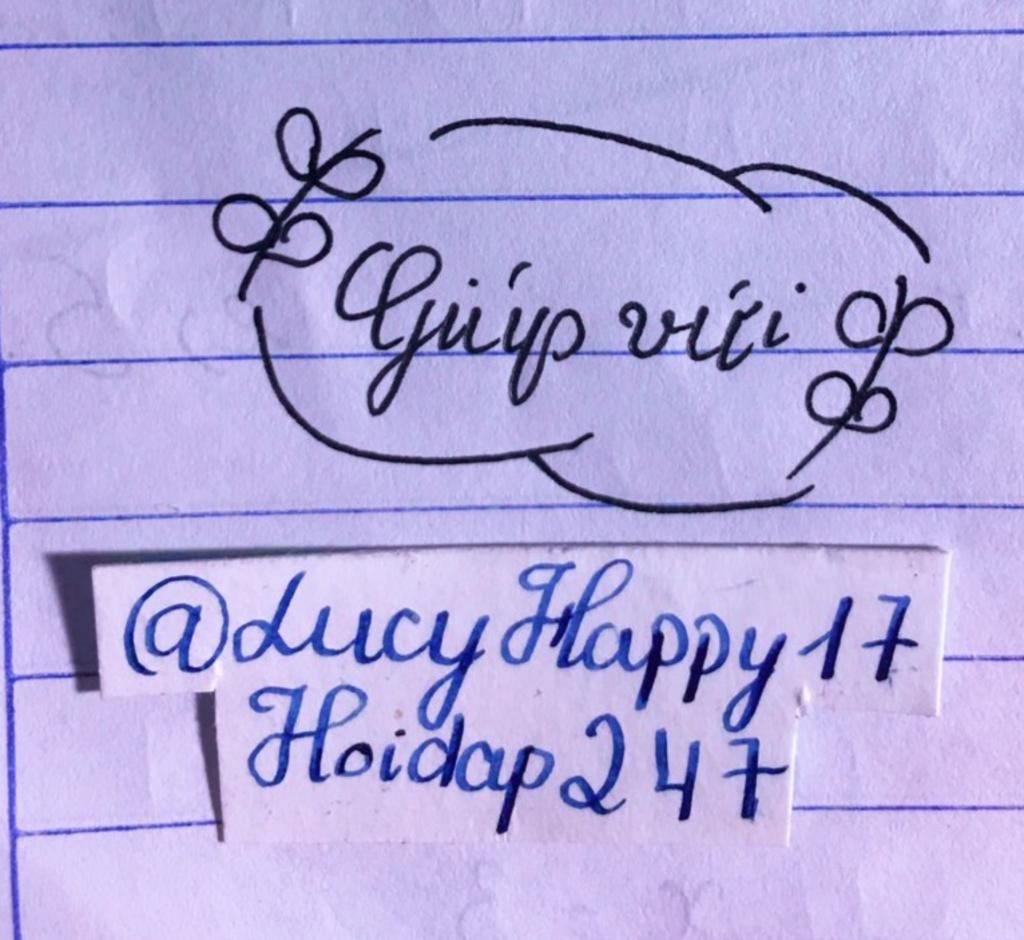 Giúp với
@LucyHappy17
Hoidap247